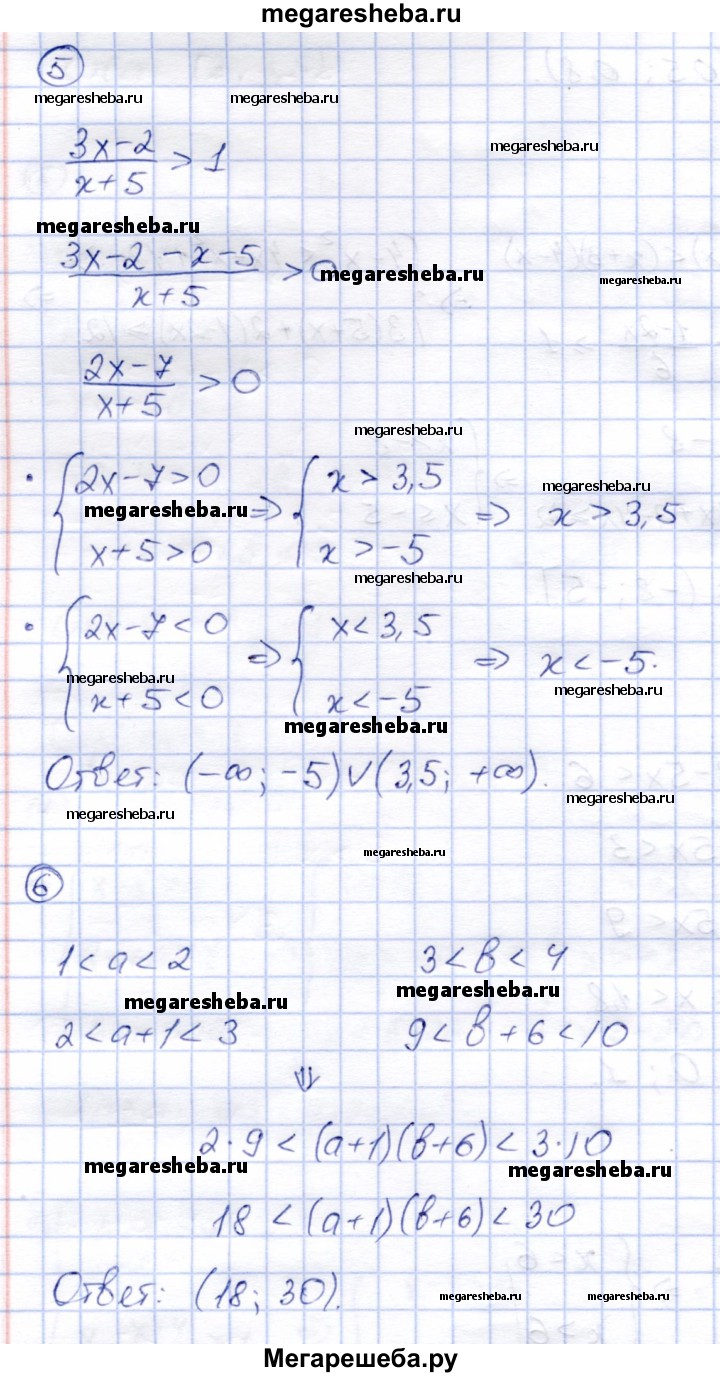 megaresheba.ru
5
megaresheba.ru megaresheba.ru
(3x-2)/(x+5) > 1
megaresheba.ru
megaresheba.ru
(3x-2-x-5)/(x+5) > 0
megaresheba.ru megaresheba.ru
(2x-7)/(x+5) > 0
megaresheba.ru
• { 2x-7>0 ⇒ { x > 3,5 ⇒ x > 3,5
megaresheba.ru megaresheba.ru
x+5>0 x>-5
megaresheba.ru
• { 2x-7<0 ⇒ { x<3,5 ⇒ x<-5.
megaresheba.ru megaresheba.ru
x+5<0 x<-5
megaresheba.ru
Ответ: (-∞; -5)∨(3,5; +∞).
megaresheba.ru megaresheba.ru
megaresheba.ru
6
1<a<2 3<в<4
megaresheba.ru megaresheba.ru
2<a+1<3 9<в+6<10
⇓
2·9 < (a+1)(в+6) < 3·10
megaresheba.ru megaresheba.ru
18 < (a+1)(в+6) < 30
Ответ: (18; 30).
megaresheba.ru megaresheba.ru megaresheba.ru
Мегарешеба.ру